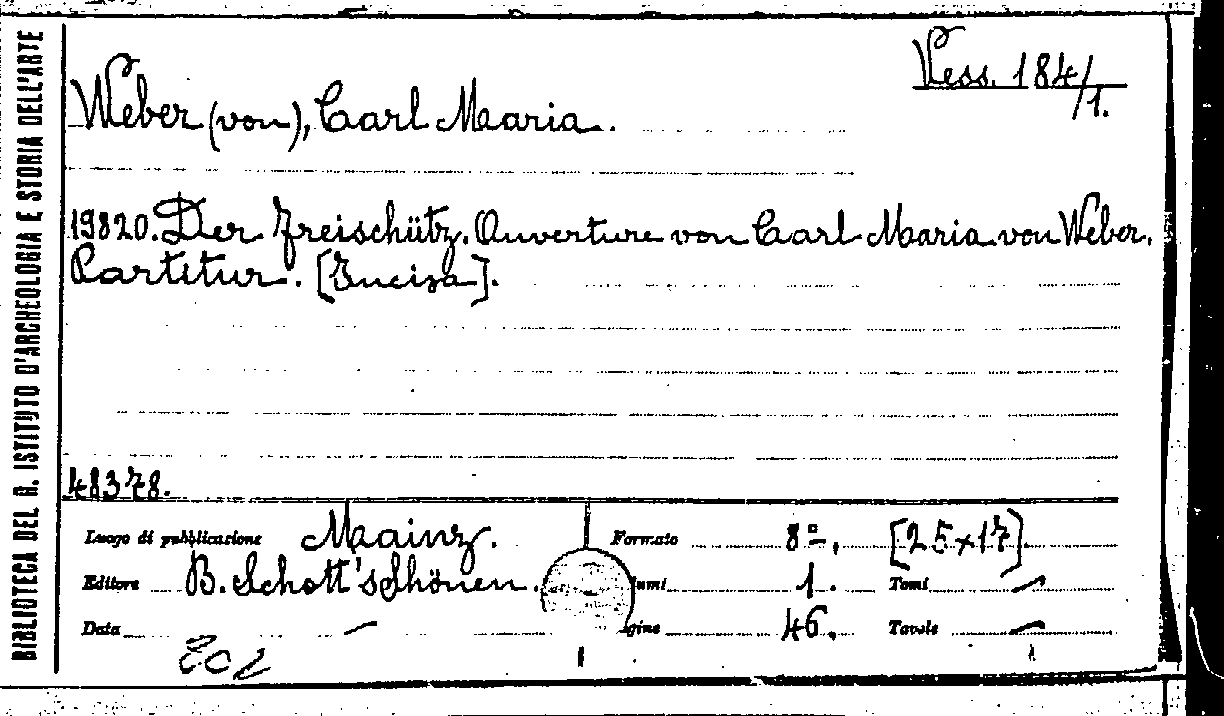 BIBLIOTECA DEL R. ISTITUTO D'ARCHEOLOGIA E STORIA DELL'ARTE
Vess. 184/1.
Weber (von), Carl Maria.
19820. Der Freischütz. Ouverture von Carl Maria von Weber.
Partitur. [Incisa].
48378.
Luogo di pubblicazione Mainz. Formato 8º, [25x17].
Editore B. Schott's Söhnen. 1. Tomi —
Data — 46. Tavole —